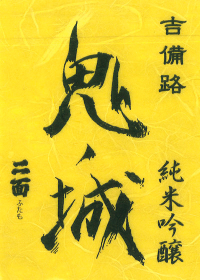 吉備路
鬼ノ城
純米吟醸
二面
ふたも